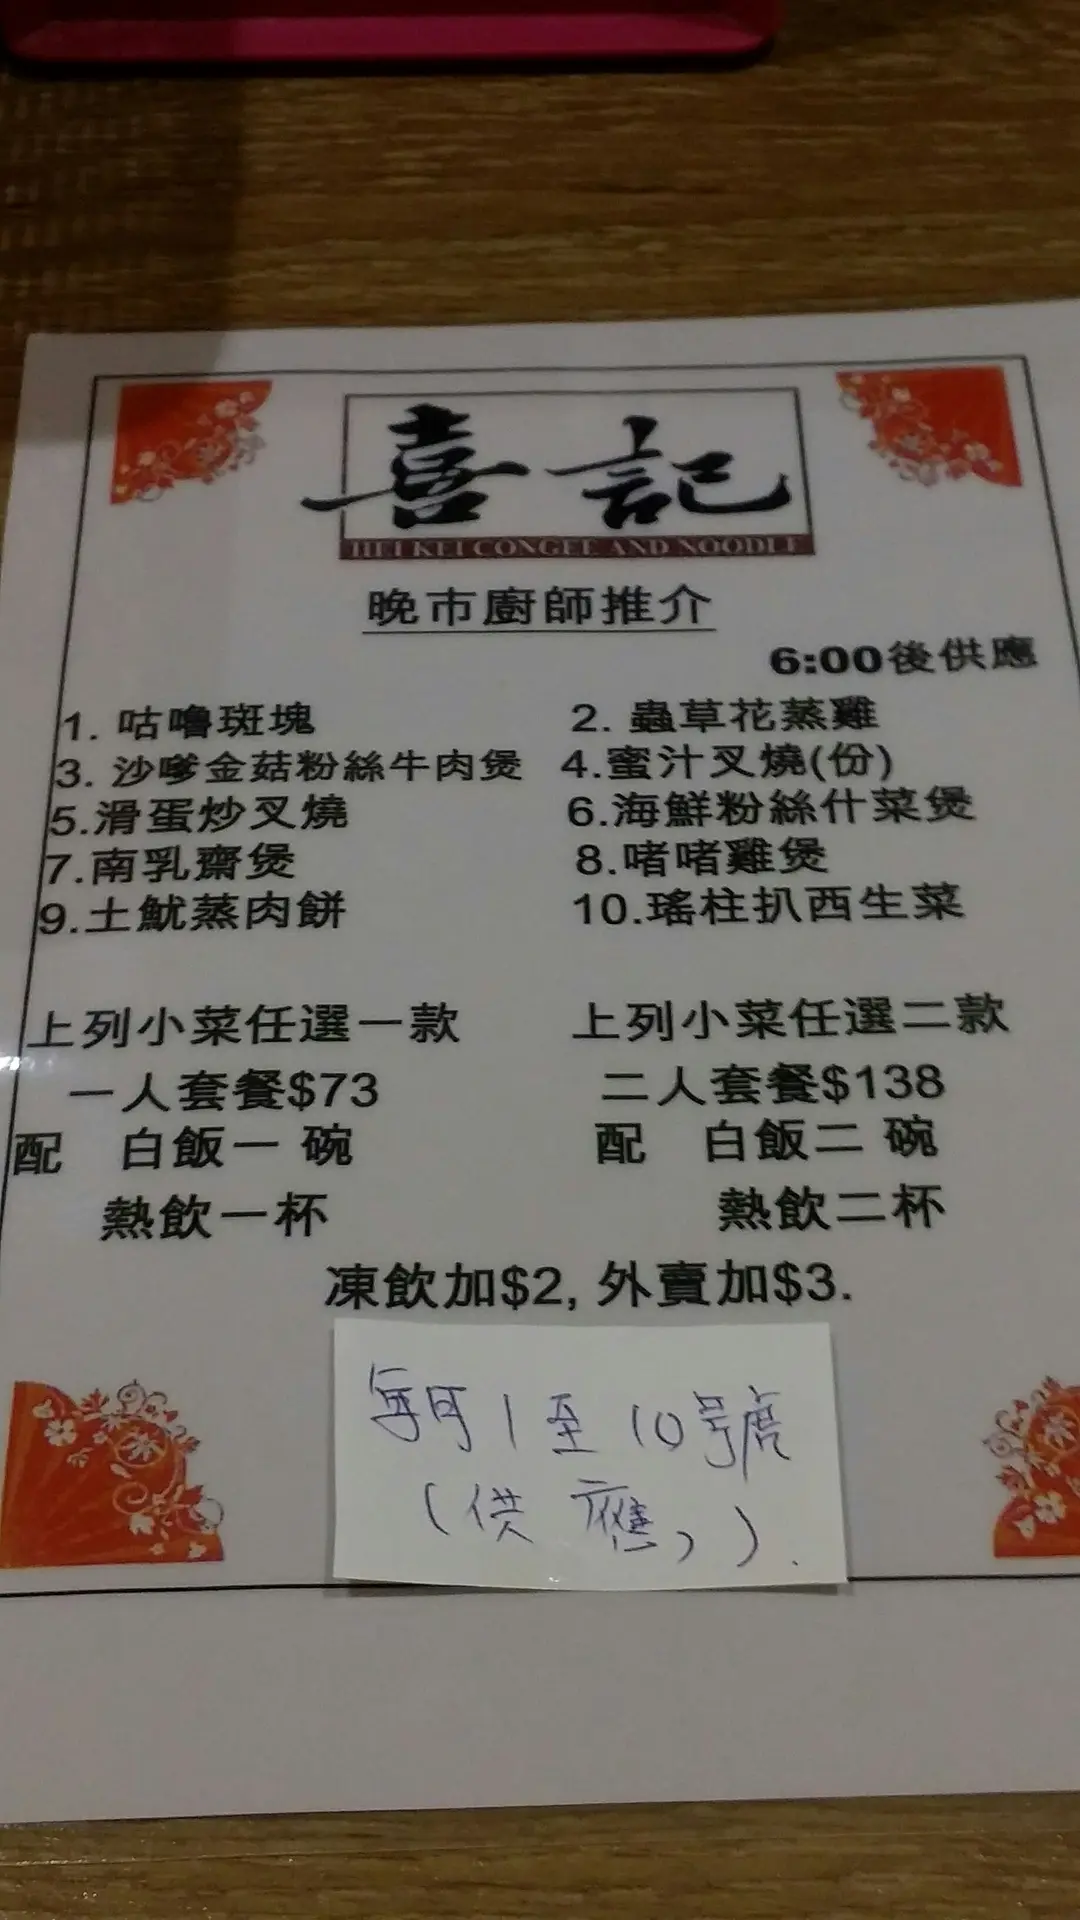 喜記
HEI KEI CONGEE AND NOODLE
晚市廚師推介
6:00後供應
1. 咕嚕斑塊 2. 蟲草花蒸雞
3. 沙嗲金菇粉絲牛肉煲 4.蜜汁叉燒(份)
5.滑蛋炒叉燒 6.海鮮粉絲什菜煲
7.南乳齋煲 8.啫啫雞煲
9.土魷蒸肉餅 10.瑤柱扒西生菜
上列小菜任選一款 上列小菜任選二款
一人套餐$73 二人套餐$138
配 白飯一 碗 配 白飯二 碗
熱飲一杯 熱飲二杯
凍飲加$2, 外賣加$3.
每月1至10號
(供應,).